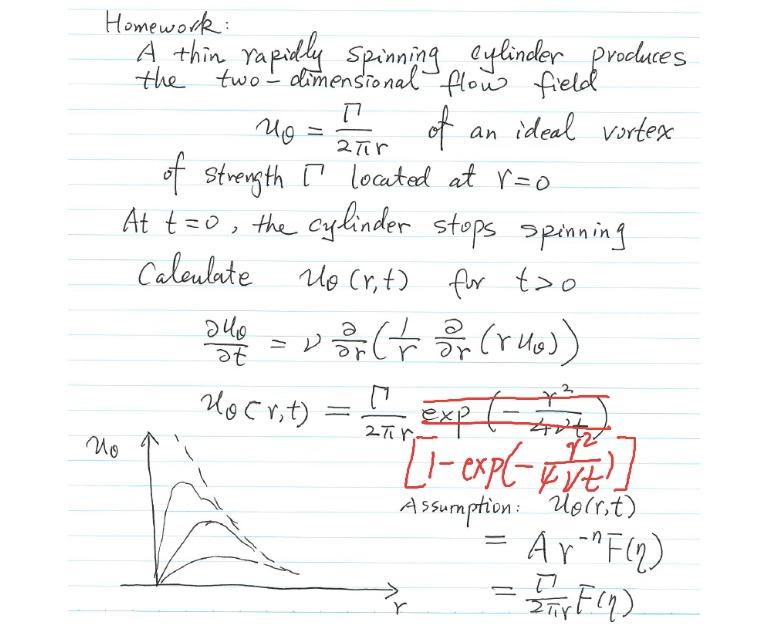 Homework:
A thin rapidly spinning cylinder produces
the two-dimensional flow field
u_θ = Γ / 2πr of an ideal vortex
of strength Γ located at r=0
At t=0, the cylinder stops spinning
Calculate u_θ(r,t) for t>0
∂u_θ/∂t = ν ∂/∂r (1/r ∂/∂r (r u_θ))
u_θ(r,t) = Γ/2πr exp(- r²/4νt)
[1-exp(- r²/4νt)]
u_θ
Assumption: u_θ(r,t)
= A r⁻ⁿ F(η)
= Γ/2πr F(η)
r